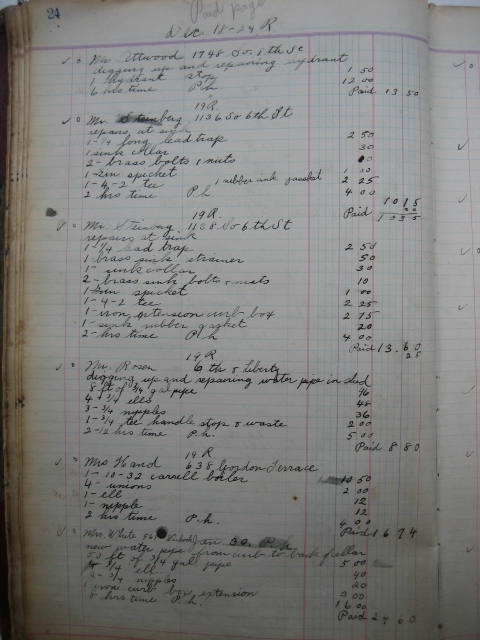 24
Paid page
Dec 18-24 R
Attwood 1748 So. 8th St
digging up and repairing hydrant
1 hydrant stop 1 50
6 hrs time P.h 12 00
Paid 13 50
19 R
Mr. Steinberg 1136 So 6th St
repairs at sink
1-1/4 long lead trap 2 50
1 sink collar 30
2- brass bolts & nuts
1-2in spicket 1 00
1-4-2 tee 1 rubber sink gasket 2 25
2 hrs time P.h. 4 00
10 15
Paid 10 35
19 R.
Mr. Steinberg 1138 So 6th St
repairs at sink
1-1/4 lead trap 2 50
1- brass sink strainer 50
1- sink collar 30
2- brass sink bolts & nuts 10
spicket 1 00
1-4-2 tee 2 25
1- iron extension curb box 2 75
1- sink rubber gasket 20
2- hrs time P.h 4 00
Paid 13.60
25
19 R
Mr. Rosen 6th & liberty
digging up and repairing water pipe in
8 ft of 3/4 gal pipe 96
4-3/4 ells 48
3-3/4 nipples 36
1-3/4 tee handle stop & waste 2 00
2-1/2 hrs time P.h. 5 00
Paid 8 80
19 R
Mrs Hand 638 Gordon Terrace
1-10-32 boiler 10 50
4- unions 2 00
1- ell 12
1- nipple 12
2 hrs time P.h. 4 00
Paid 16 74
Mrs. White 561 Jan 30. P.h
new water pipe from curb to back of cellar
ft of 3/4 gal pipe 5 00
4 3/4 ell 40
2-3/4 nipples 20
1 iron curb box extension 3 00
8 hrs time P.h. 16 00
Paid 24 60